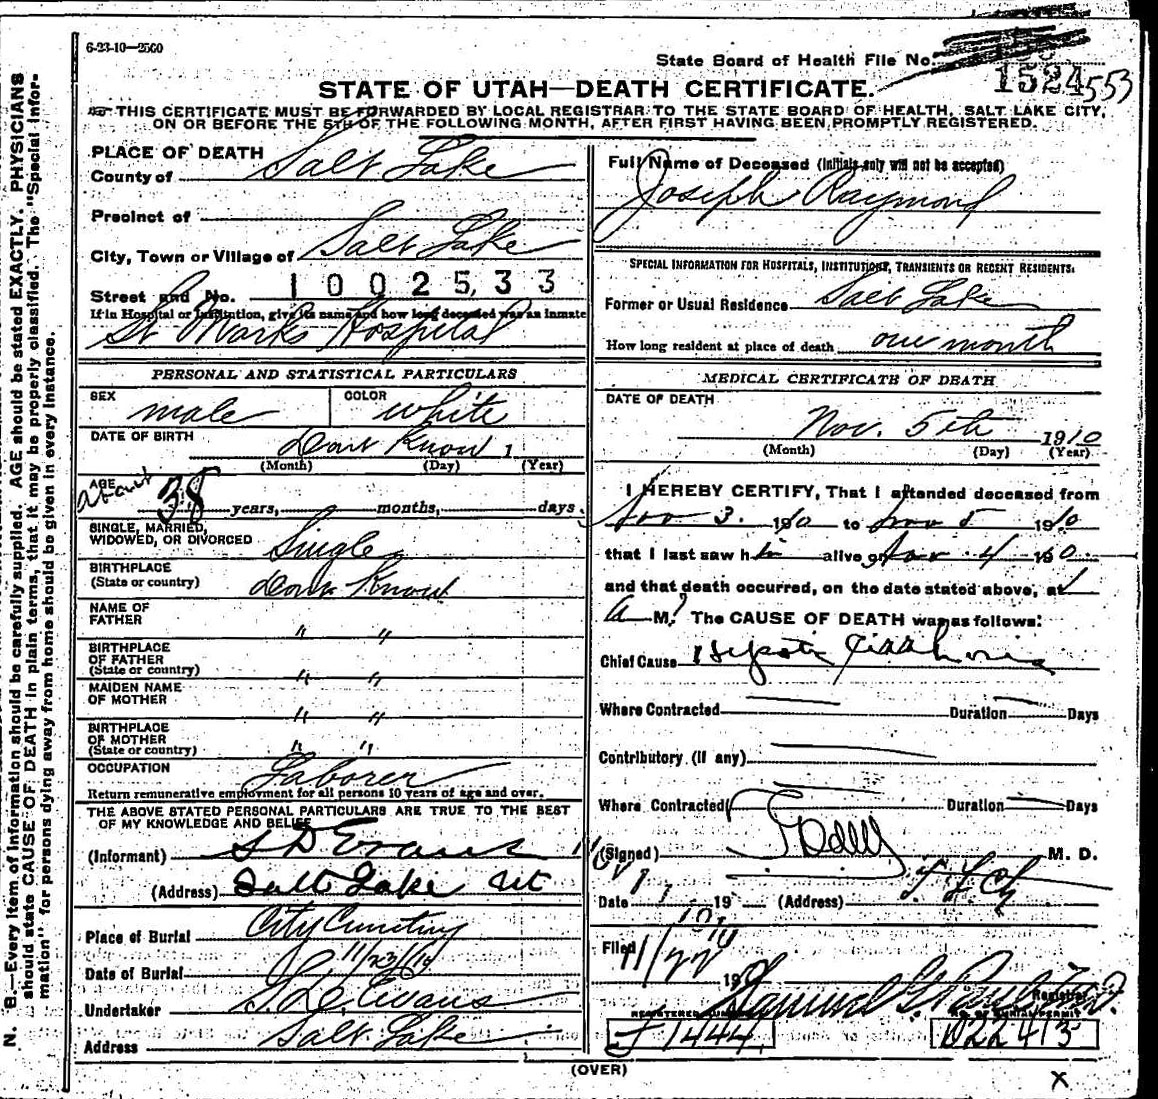 6-23-10—2500
State Board of Health File No.
1524 553
STATE OF UTAH—DEATH CERTIFICATE.
THIS CERTIFICATE MUST BE FORWARDED BY LOCAL REGISTRAR TO THE STATE BOARD OF HEALTH, SALT LAKE CITY,
ON OR BEFORE THE 5TH OF THE FOLLOWING MONTH, AFTER FIRST HAVING BEEN PROMPTLY REGISTERED.
N. B.—Every item of information should be carefully supplied. AGE should be stated EXACTLY. PHYSICIANS
should state CAUSE OF DEATH in plain terms, that it may be properly classified. The "Special Infor-
mation" for persons dying away from home should be given in every instance.
PLACE OF DEATH
County of Salt Lake
Precinct of
City, Town or Village of Salt Lake
Street and No. 1002533
If in Hospital or Institution, give its name and how long deceased was an inmate
St Marks Hospital
PERSONAL AND STATISTICAL PARTICULARS
SEX male COLOR white
DATE OF BIRTH Dont Know 1
(Month) (Day) (Year)
AGE about 38 years, months, days
SINGLE, MARRIED,
WIDOWED, OR DIVORCED Single
BIRTHPLACE
(State or country) Dont Know
NAME OF
FATHER " "
BIRTHPLACE
OF FATHER
(State or country) " "
MAIDEN NAME
OF MOTHER " "
BIRTHPLACE
OF MOTHER
(State or country) " "
OCCUPATION Laborer
Return remunerative employment for all persons 10 years of age and over.
THE ABOVE STATED PERSONAL PARTICULARS ARE TRUE TO THE BEST
OF MY KNOWLEDGE AND BELIEF
(Informant) S D Evans
(Address) Salt Lake Ut
Place of Burial City Cemetery
Date of Burial 11/23/10
Undertaker S. D. Evans
Address Salt Lake
Full Name of Deceased (Initials only will not be accepted)
Joseph Raymond
SPECIAL INFORMATION FOR HOSPITALS, INSTITUTIONS, TRANSIENTS OR RECENT RESIDENTS.
Former or Usual Residence Salt Lake
How long resident at place of death one month
MEDICAL CERTIFICATE OF DEATH
DATE OF DEATH
Nov. 5th 1910
(Month) (Day) (Year)
I HEREBY CERTIFY, That I attended deceased from
Nov 3. 1910 to Nov 5 1910
that I last saw him alive on Nov 4 1910
and that death occurred, on the date stated above, at 1
A M. The CAUSE OF DEATH was as follows:
Chief Cause
Where Contracted Duration Days
Contributory (if any)
Where Contracted Duration Days
(Signed) M. D.
Date 19 (Address)
Filed 11/22 1910
Registrar
REGISTERED NUMBER
J 1444
NO. OF BURIAL PERMIT
D22413
(OVER)
X